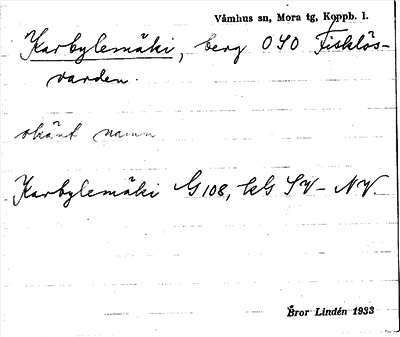 Våmhus sn, Mora tg, Koppb. l.
Karbylemäki, berg OSO Fisklös-
varden.
okänt namn
Karbylemäki G 108, kG SV-NV.
Bror Lindén 1933